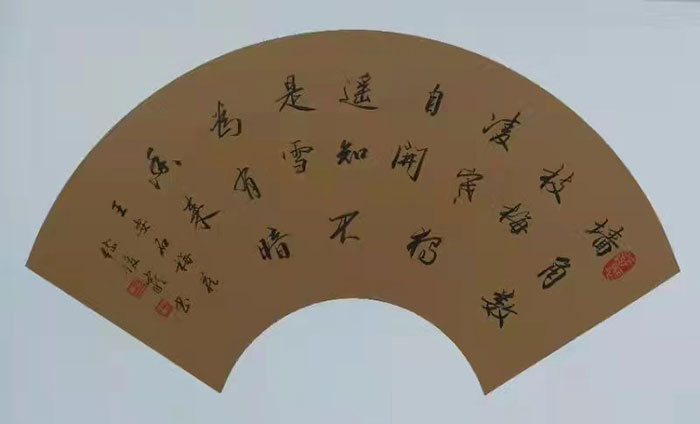 墙角数
枝梅
凌寒独
自開
遥知不
是雪
為有暗
香来
王安石梅花
书